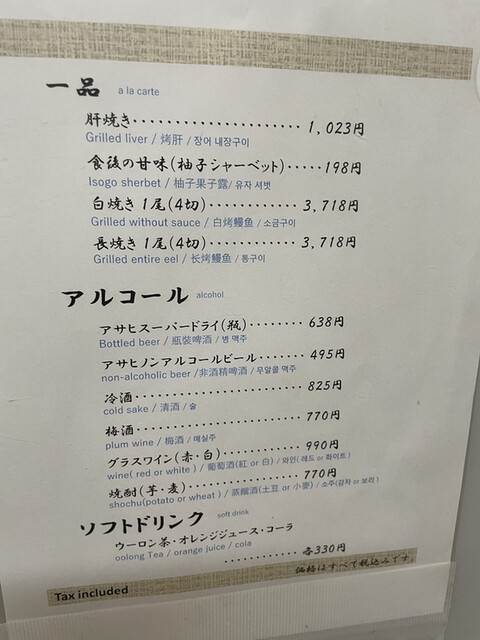 一品 a la carte
肝焼き・・・・・・・・・・・・・・・・・・・・・1,023円
Grilled liver / 烤肝 / 장어 내장구이
食後の甘味(柚子シャーベット)・・・・・198円
Isogo sherbet / 柚子果子露/ 유자 셔벗
白焼き1尾(4切)・・・・・・・・・・・・3,718円
Grilled without sauce / 白烤鳗鱼 / 소금구이
長焼き1尾(4切)・・・・・・・・・・・・3,718円
Grilled entire eel / 长烤鳗鱼 / 통구이
アルコール alcohol
アサヒスーパードライ(瓶)・・・・・・・・638円
Bottled beer / 瓶裝啤酒 / 병 맥주
アサヒノンアルコールビール・・・・・・・495円
non-alcoholic beer /非酒精啤酒 / 무알콜 맥주
冷酒・・・・・・・・・・・・・・・・・・・・・・825円
cold sake / 清酒 / 술
梅酒・・・・・・・・・・・・・・・・・・・・・・770円
plum wine / 梅酒 / 매실주
グラスワイン(赤・白)・・・・・・・・・・・990円
wine( red or white ) / 葡萄酒(紅 or 白) / 와인( 레드 or 화이트 )
焼酎(芋・麦)・・・・・・・・・・・・・・・770円
shochu(potato or wheat ) / 蒸餾酒(土豆 or 小麥) / 소주(감자 or 보리 )
ソフトドリンク soft drink
ウーロン茶・オレンジジュース・コーラ
oolong Tea / orange juice / cola
・・・・・・・・・・・・各330円
価格はすべて税込みです。
Tax included